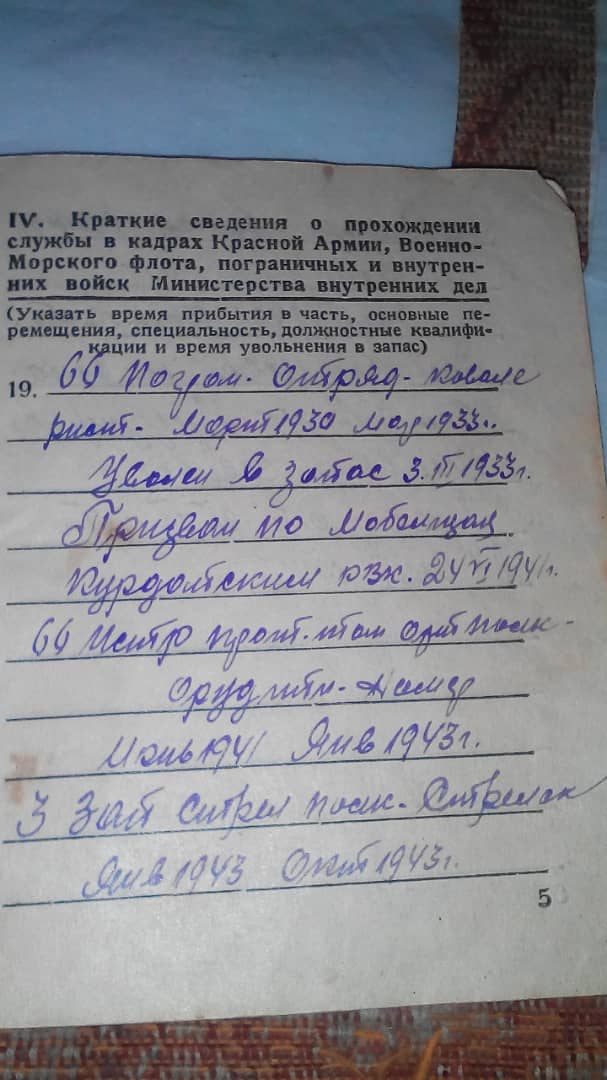 IV. Краткие сведения о прохождении
службы в кадрах Красной Армии, Военно-
Морского флота, пограничных и внутрен-
них войск Министерства внутренних дел
(Указать время прибытия в часть, основные пе-
ремещения, специальность, должностные квалифи-
кации и время увольнения в запас)
19. 66 Погран. Отряд - Кавале
рист - Март 1930 Мар 1933г.
Уволен в запас 3.III 1933г.
Призван по Мобилизац
Курдайским рвк. 24 VI 1941г.
66 прот. тан арт полк -
Орудийн - Номер
Июнь 1941 Янв 1943г.
3 Зап Стрел полк - Стрелок
Янв 1943 Окт 1943г.
5